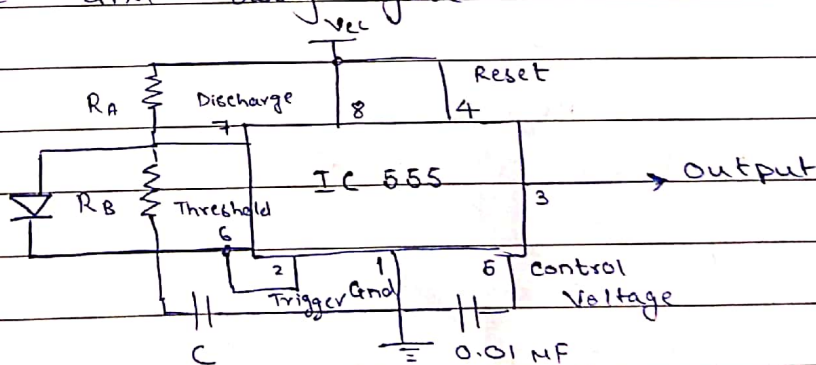 Vcc
Reset
RA
Discharge
8
4
7
IC 555
Output
3
RB
Threshold
6
2
1
5
Control
Trigger
Gnd
Voltage
C
0.01 MF